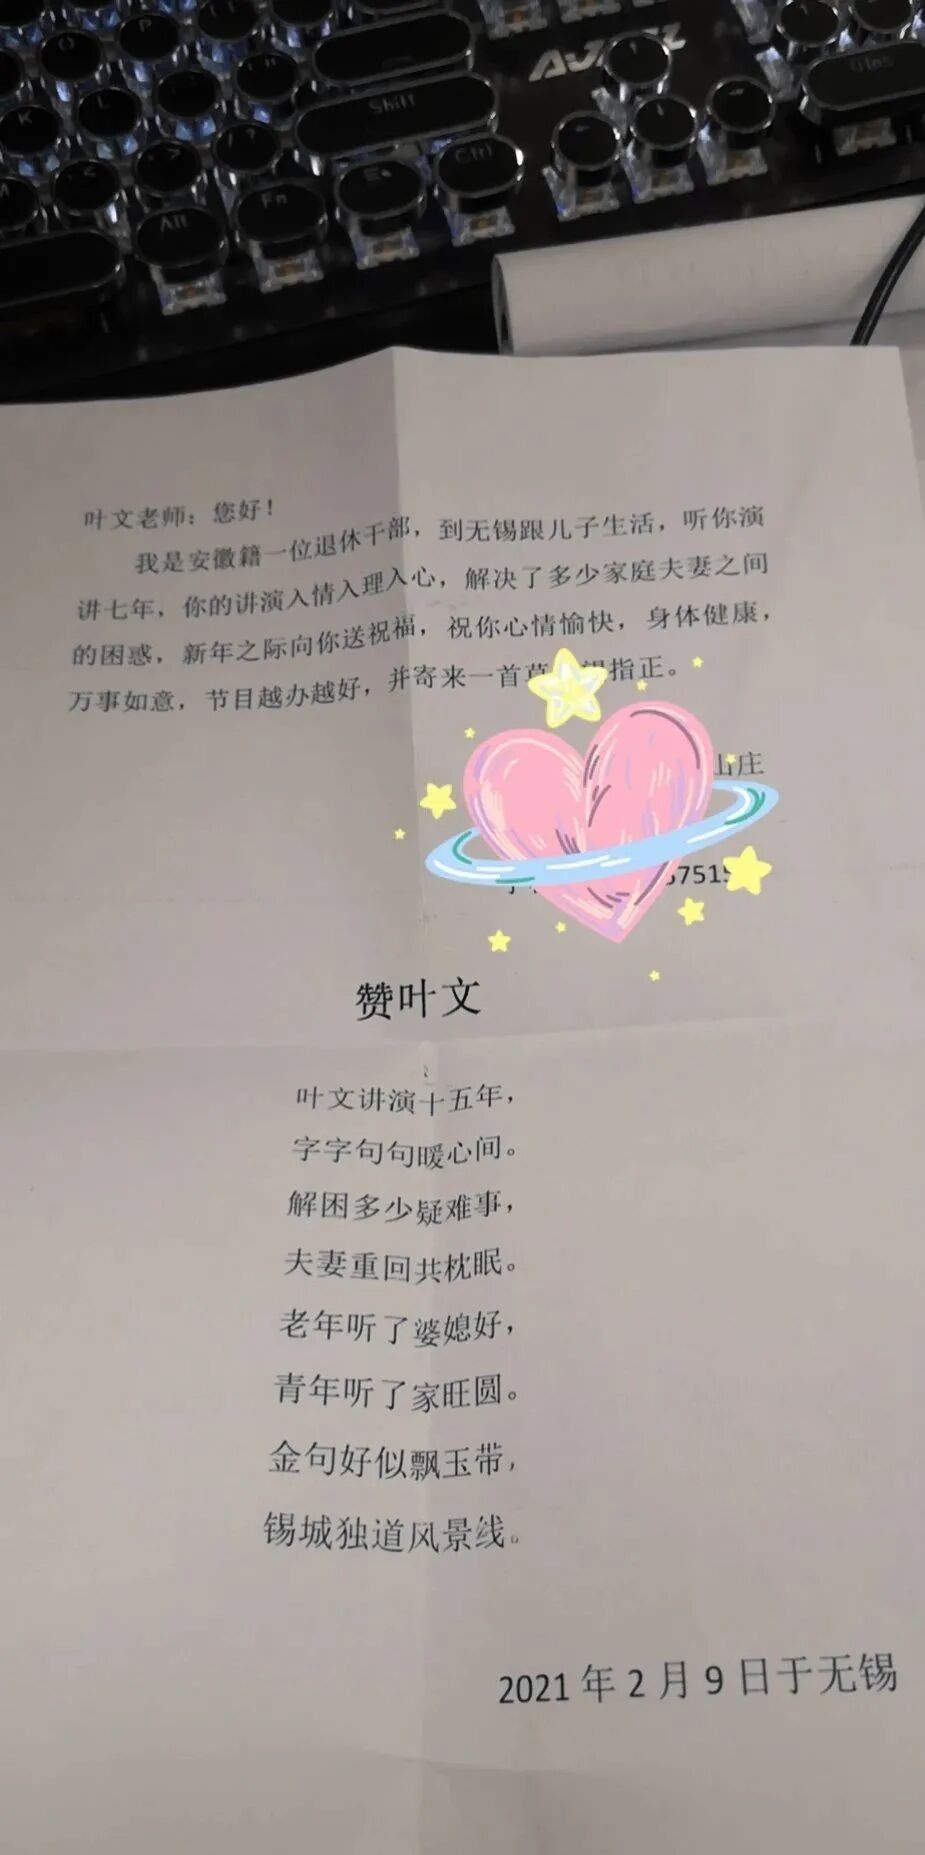 P
K
L
Shift
M
Alt
Fn
Ctrl
AJAZZ
0 Ins
叶文老师：您好！
我是安徽籍一位退休干部，到无锡跟儿子生活，听你演
讲七年，你的讲演入情入理入心，解决了多少家庭夫妻之间
的困惑，新年之际向你送祝福，祝你心情愉快，身体健康，
万事如意，节目越办越好，并寄来一首 指正。
山庄
赞叶文
叶文讲演十五年，
字字句句暖心间。
解困多少疑难事，
夫妻重回共枕眠。
老年听了婆媳好，
青年听了家旺圆。
金句好似飘玉带，
锡城独道风景线。
2021 年 2 月 9 日于无锡